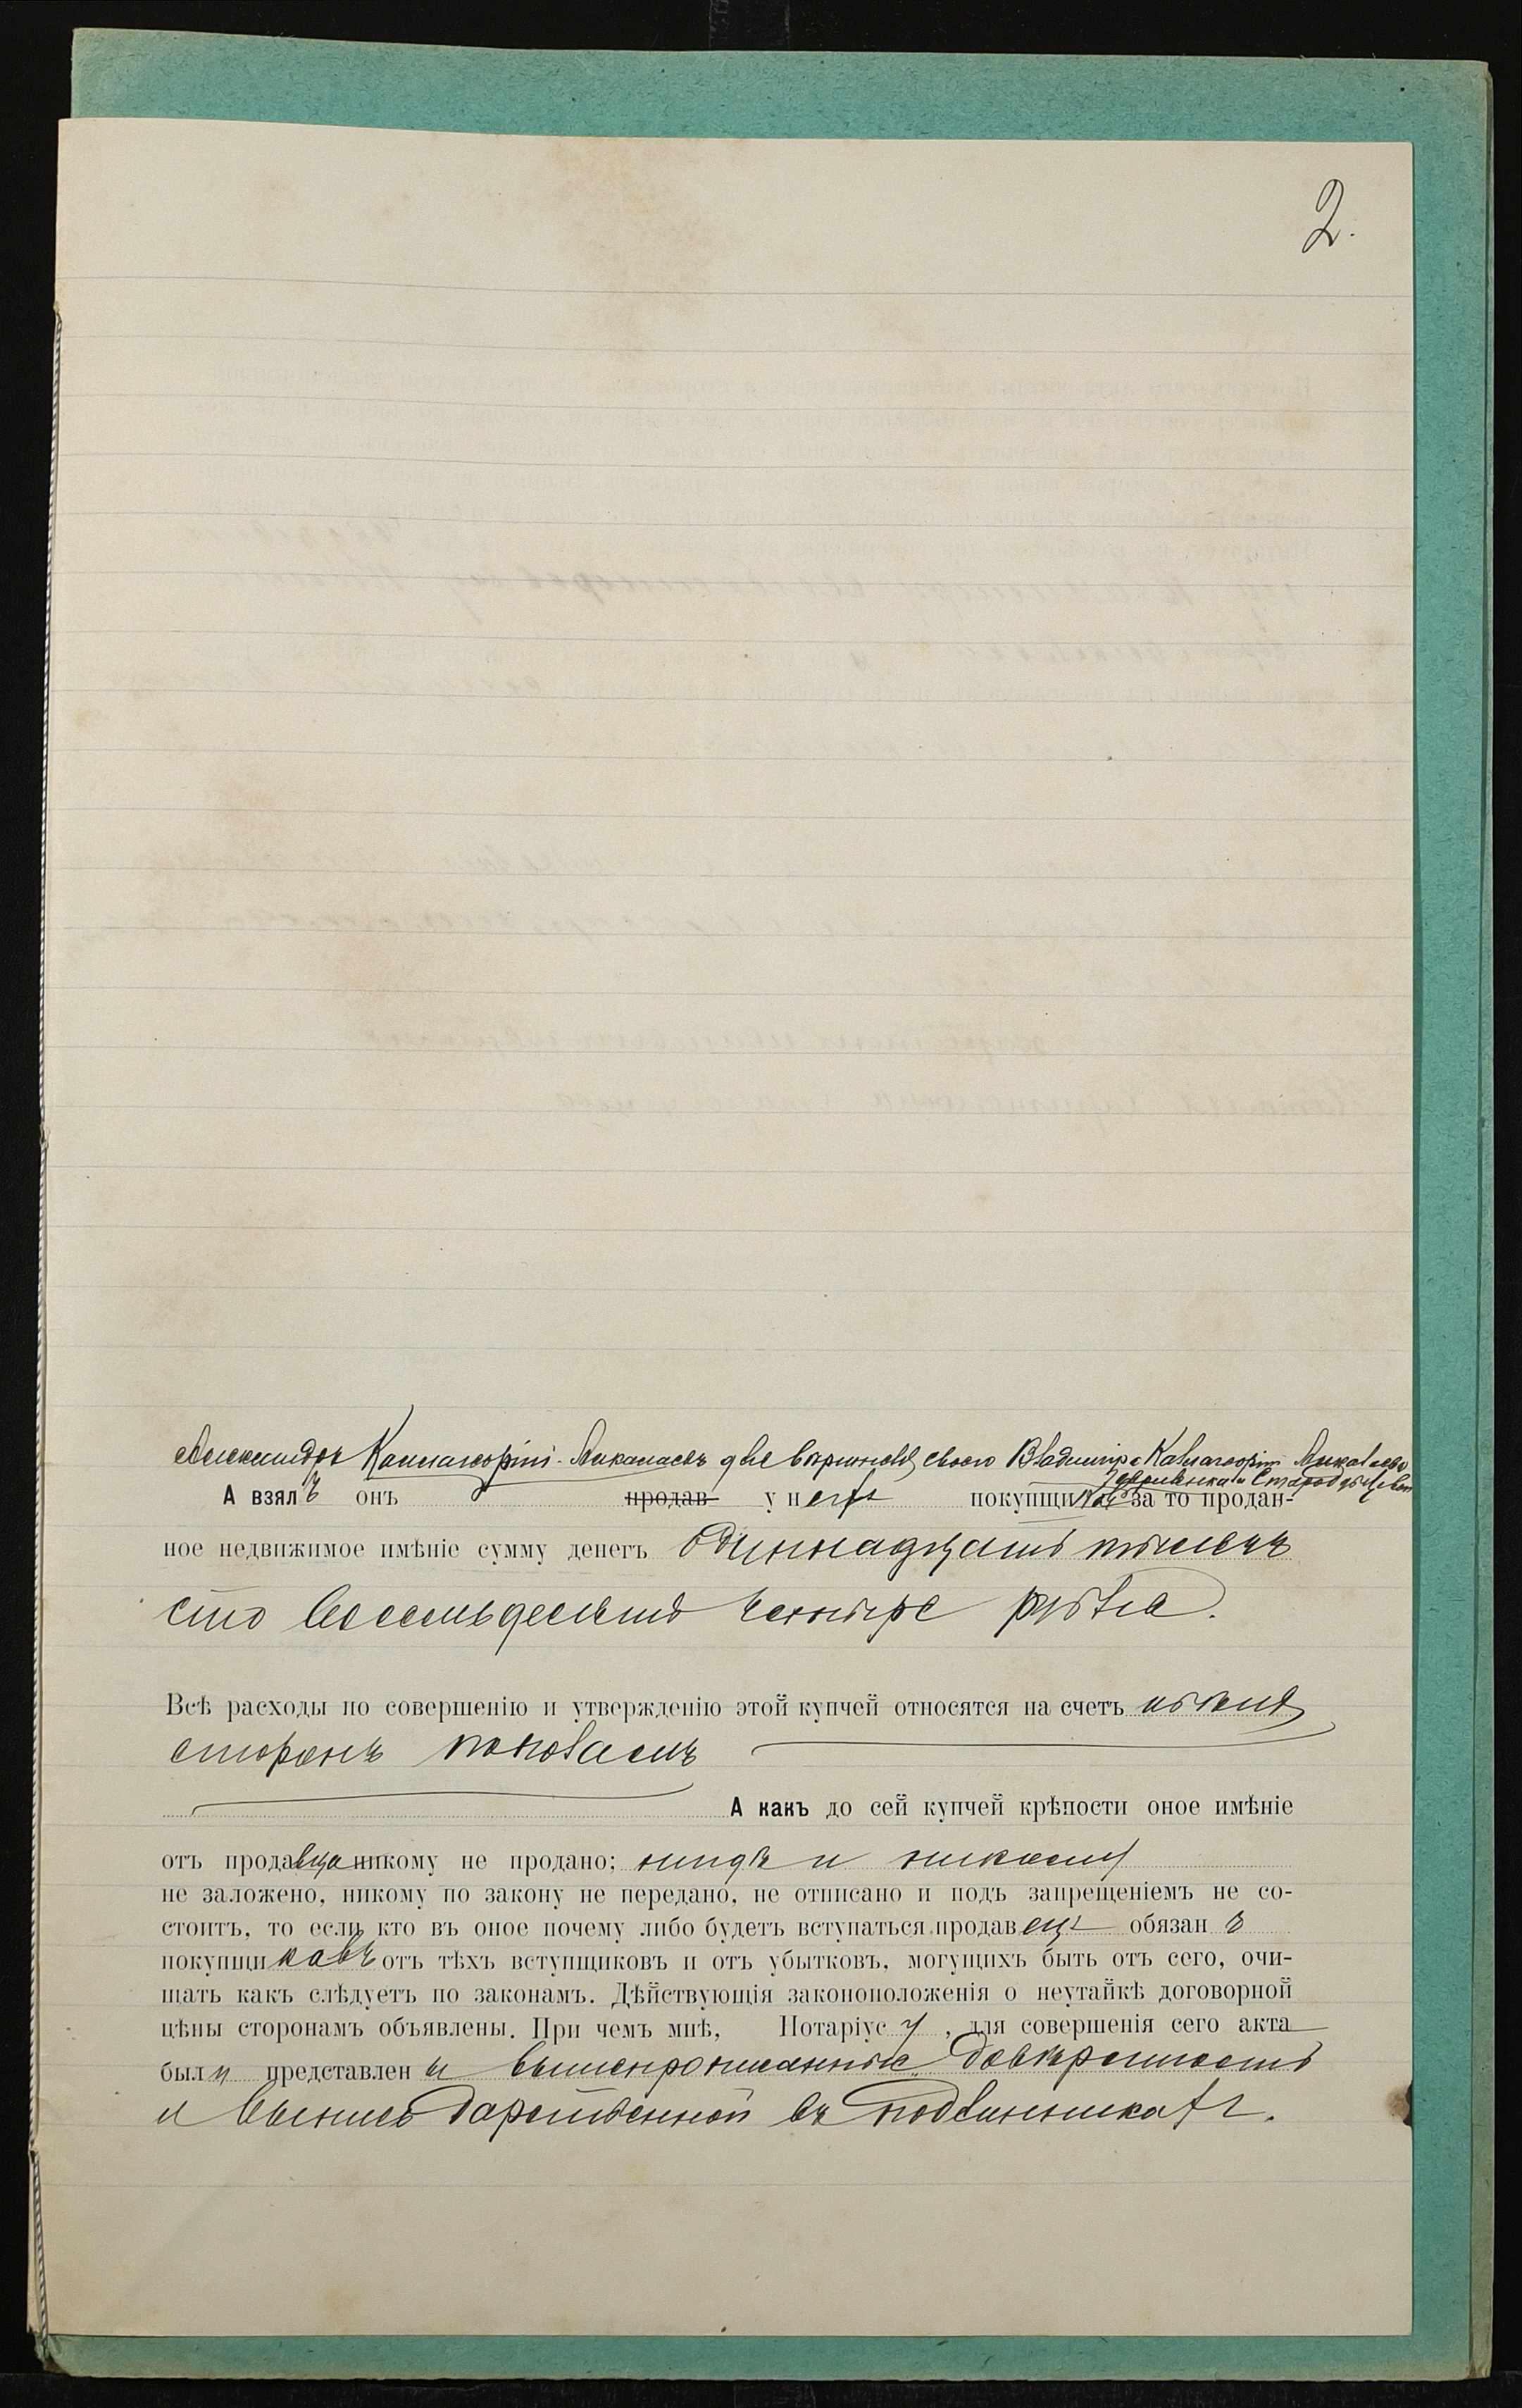 2.
Александръ Калиасорини-Микалаевъ для вѣрителя своего Владимира Калиасорини Микалаева
А взялъ онъ продав у него покупщиковъ за то продан-
ное недвижимое имѣніе сумму денегъ одиннадцать тысячъ
сто восемьдесятъ четыре рубля.
Всѣ расходы по совершенію и утвержденію этой купчей относятся на счетъ обѣихъ
сторонъ пополамъ
А какъ до сей купчей крѣпости оное имѣніе
отъ продавца никому не продано; нигдѣ и никому
не заложено, никому по закону не передано, не отписано и подъ запрещеніемъ не со-
стоитъ, то если кто въ оное почему либо будетъ вступаться продавецъ обязанъ
покупщиковъ отъ тѣхъ вступщиковъ и отъ убытковъ, могущихъ быть отъ сего, очи-
щать какъ слѣдуетъ по законамъ. Дѣйствующія законоположенія о неутайкѣ договорной
цѣны сторонамъ объявлены. При чемъ мнѣ, Нотаріусу, для совершенія сего акта
были представлены вышепрописанные довѣренность
и выпись дарственной въ подлинникахъ.